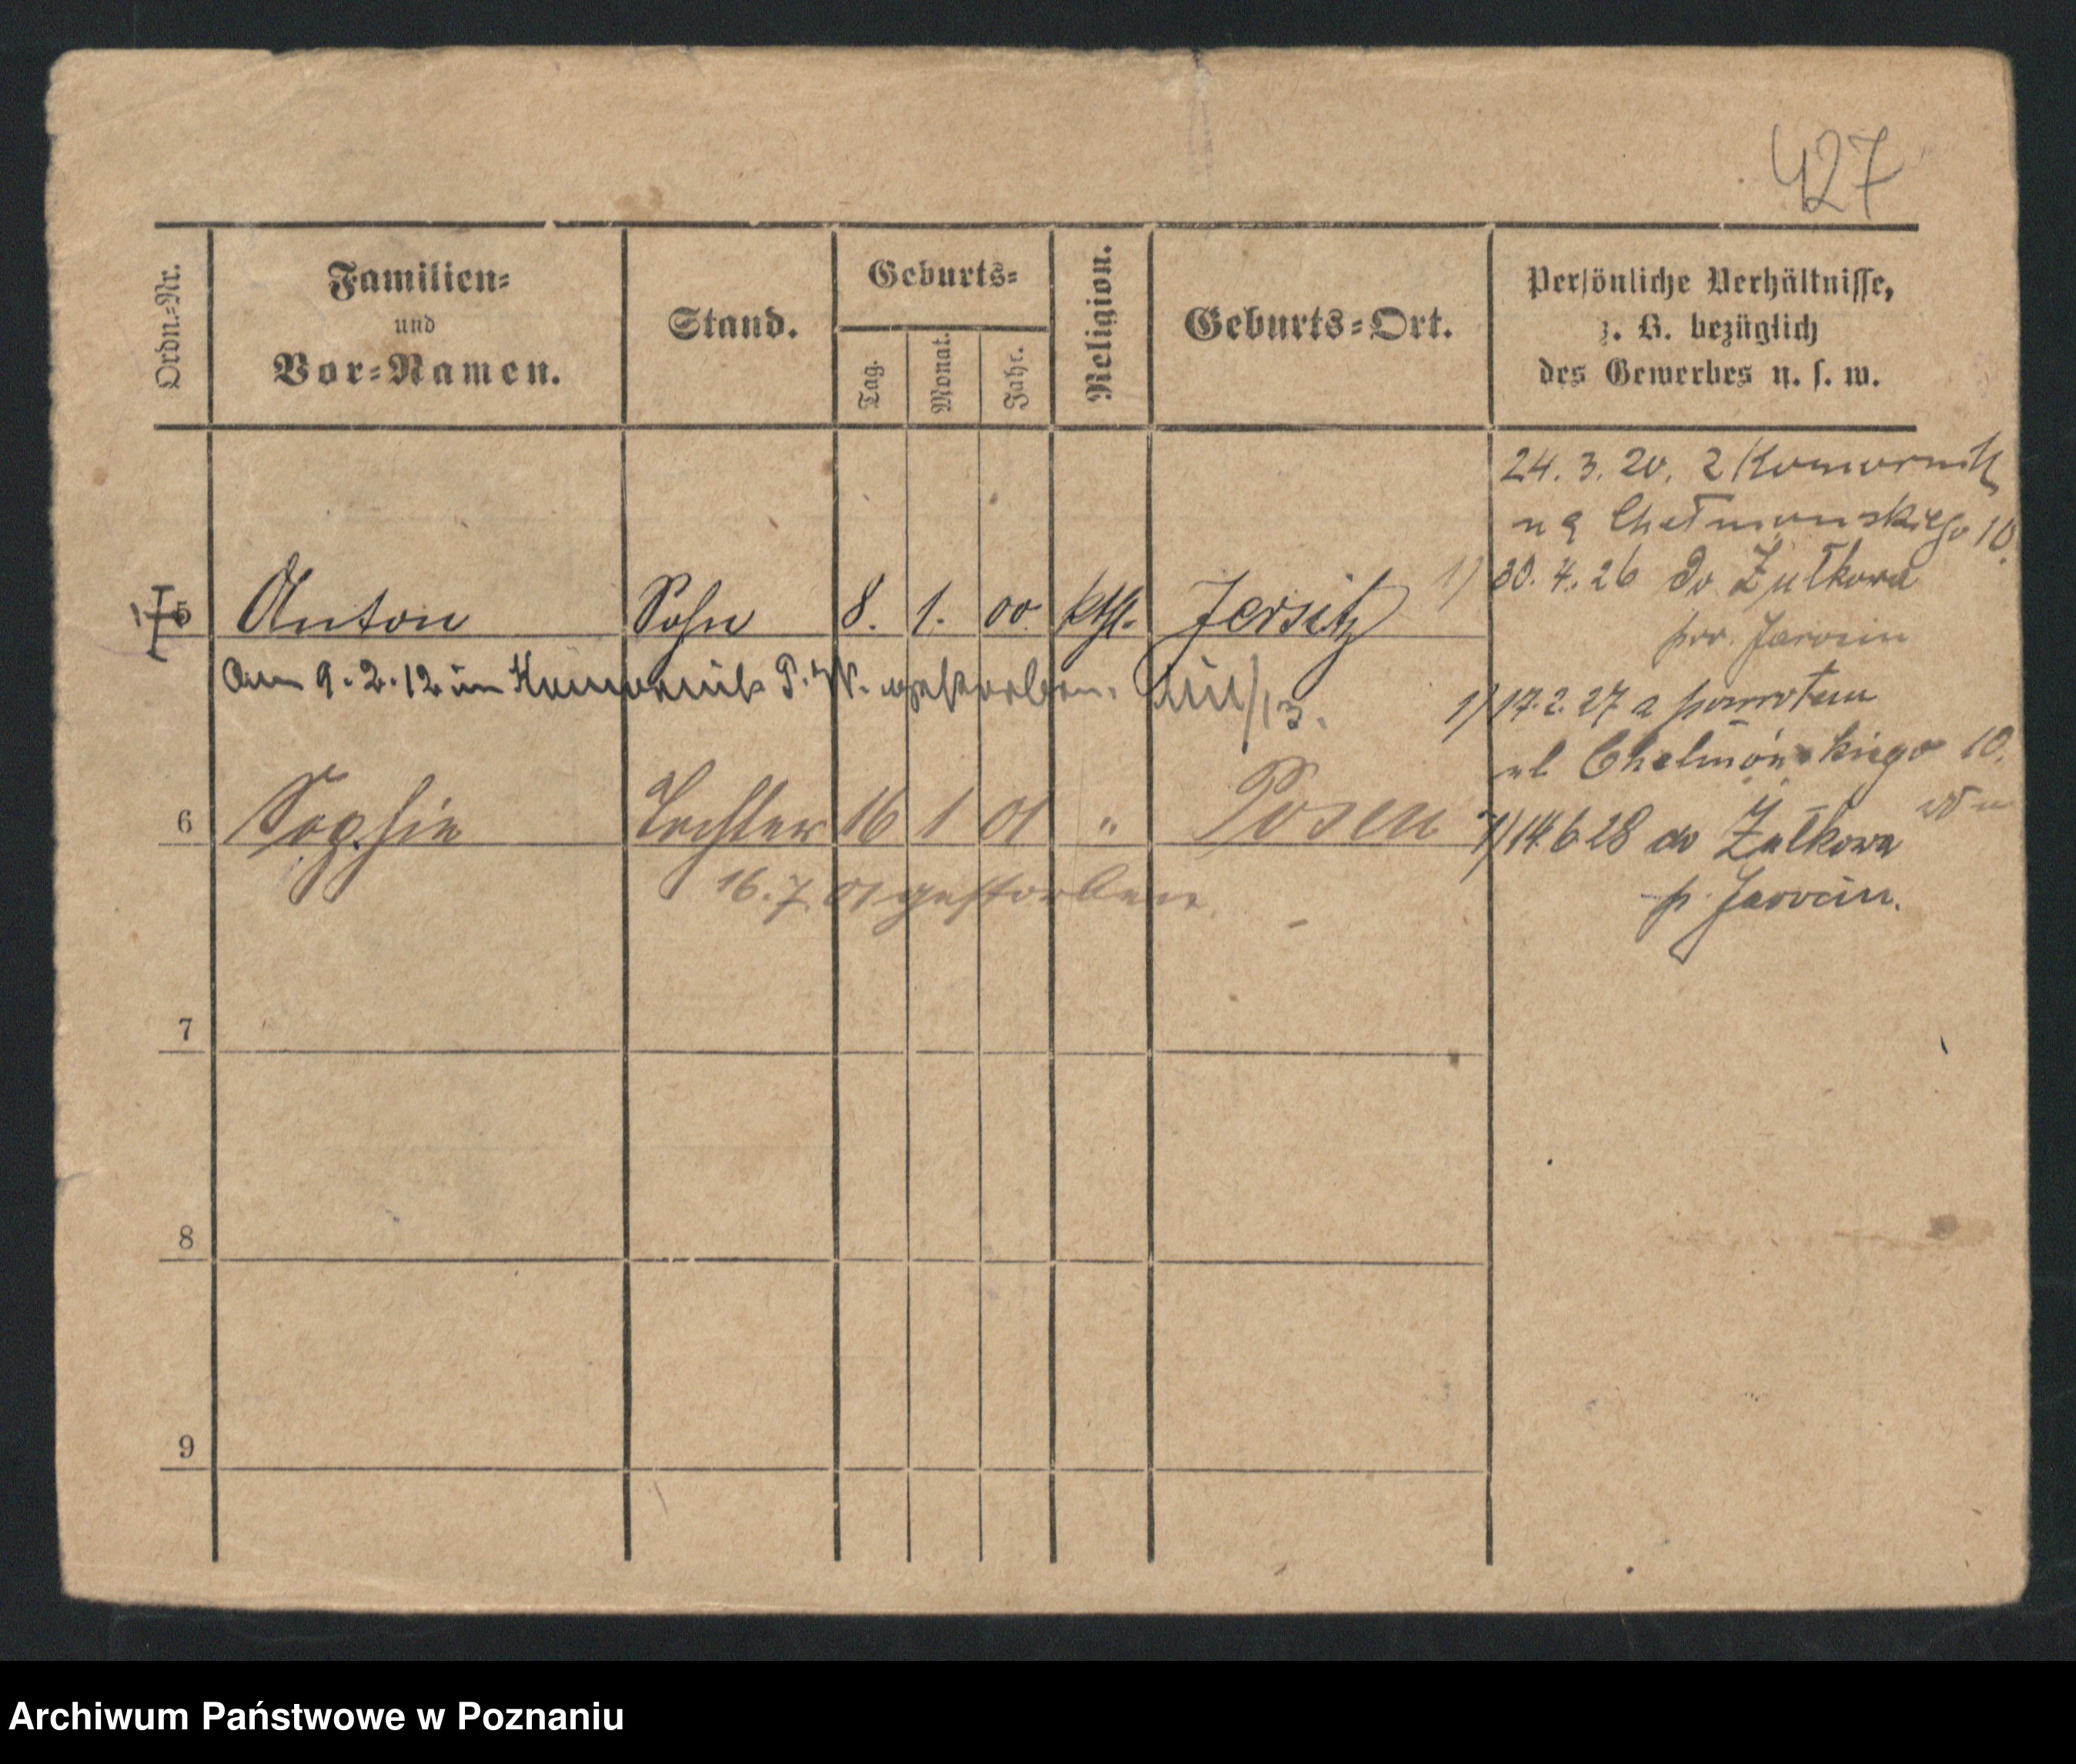 427
Ordn.=Nr.
Familien=
und
Vor=Namen.
Stand.
Geburts=
Tag.
Monat.
Jahr.
Religion.
Geburts=Ort.
Persönliche Verhältnisse,
z. B. bezüglich
des Gewerbes u. s. w.
24. 3. 20. z Komornik
na Chełmonskiego 10.
5 Anton Sohn 8. 1. 00 kth. Jersitz
1) 30. 4. 26 do Żułkowa
pow. Jarocin
Am 9.2.12 in Komornik P. W. gestorben. /13.
1) 17.2.27 z powrotem
ul Chelmónskiego 10.
6 Sophie Tochter 16 1 01 " Posen
1) 14.6 28 do Żułkowa
p. Jarocin.
16. 7. 01 gestorben.
7
8
9
Archiwum Państwowe w Poznaniu